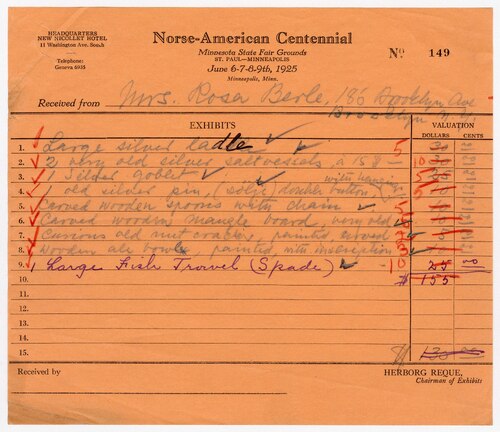 HEADQUARTERS
NEW NICOLLET HOTEL
11 Washington Ave. South
Telephone:
Geneva 6935
Norse-American Centennial
Minnesota State Fair Grounds
ST. PAUL—MINNEAPOLIS
June 6-7-8-9th, 1925
Minneapolis, Minn.
No. 149
Received from Mrs. Rosa Berle, 186 Brooklyn Ave
Brooklyn N.Y.
EXHIBITS
VALUATION
DOLLARS CENTS
1. Large silver ladle
2. 2 very old silver salt vessels a 15
3. 1 Silver goblet
4. 1 old silver pin, (solje) double button
5. Carved wooden spoons with chain
6. Carved wooden mangle board, very old
7. Curious old nut cracker, painted
8. Wooden ale bowl, painted with inscription
9. 1 Large Fish Trowel (Spade) 25 00
10. $ 155
11.
12.
13.
14.
15. $ 130 00
Received by
HERBORG REQUE,
Chairman of Exhibits